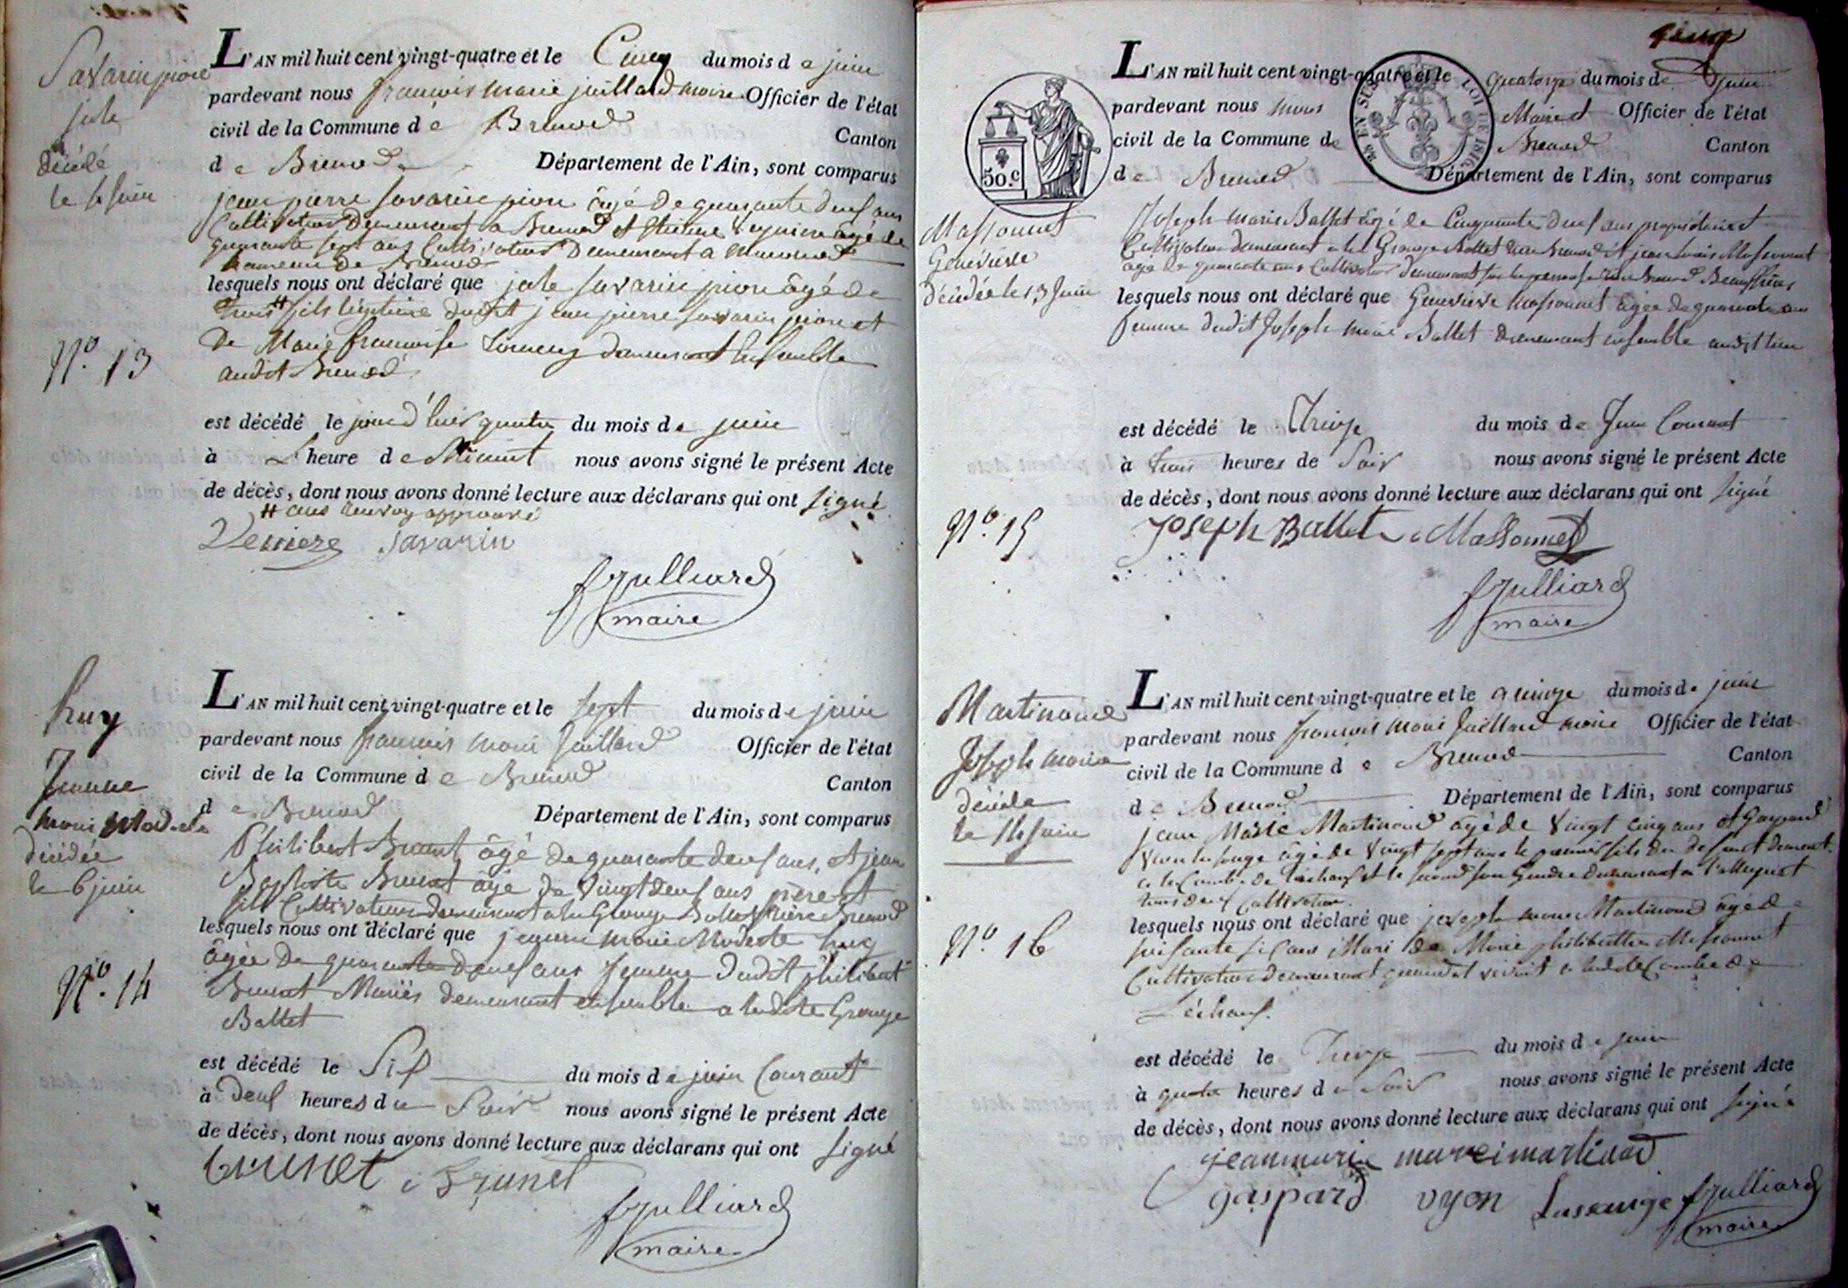 Savarin pion
jule
décédé
le 4 juin
N.° 13
L'AN mil huit cent vingt-quatre et le Cinq du mois de juin
pardevant nous francois marie juilland maire Officier de l'état
civil de la Commune de Brenod Canton
de Brenod Département de l'Ain, sont comparus
jean pierre savarin pion âgé de quarante deux ans
Cultivateur Demeurant a Brenod et
quarante sept ans Cultivateur Demeurant a
hameau de Brenod
lesquels nous ont déclaré que jule savarin pion âgé de
trois # fils légitime dudit jean pierre savarin pion et
De Marie francoise demeurant Ensemble
audit Brenod
est décédé le jour d'hier quatre du mois de juin
à heure de Minuit nous avons signé le présent Acte
de décès, dont nous avons donné lecture aux déclarans qui ont signé
# ans renvoy approuvé
Savarin
fjulliard
maire
huy
Jeanne
marie Modeste
décédée
le 6 juin
N.° 14
L'AN mil huit cent vingt-quatre et le sept du mois de juin
pardevant nous francois marie Juilland Officier de l'état
civil de la Commune de Brenod Canton
de Brenod Département de l'Ain, sont comparus
Philibert Brunet âgé de quarante deux ans, et jean
Baptiste Brunet âgé de vingt deux ans père et
fils Cultivateurs demeurant a la Grange Ballet Brenod
lesquels nous ont déclaré que jeanne marie Modeste huy
âgée de quarante deux ans femme dudit philibert
Brunet Mariés demeurant ensemble a ladite Grange
Ballet
est décédé le Six du mois de juin Courant
à Deux heures du Soir nous avons signé le présent Acte
de décès, dont nous avons donné lecture aux déclarans qui ont signé
brunet Brunet
fjulliard
maire
50.c
L'AN mil huit cent vingt-quatre et le quatorze du mois de juin
pardevant nous nous Maire et Officier de l'état
civil de la Commune de Brenod Canton
de Brenod Département de l'Ain, sont comparus
Massonnet
Genevieve
décédée le 13 Juin
N.° 15
Joseph Marie Ballet âgé de Cinquante deux ans propriétaire et
Cultivateur demeurant a la Grange Ballet Brenod et jean louis Massonnet
âgé de quarante ans Cultivateur demeurant Brenod Beaux frères
lesquels nous ont déclaré que Genevieve massonnet âgée de quarante
femme dudit Joseph marie Ballet demeurant ensemble audit lieu
est décédé le Treize du mois de Juin Courant
à trois heures de Soir nous avons signé le présent Acte
de décès, dont nous avons donné lecture aux déclarans qui ont signé
Joseph Ballet Massonnet
fjulliard
maire
Martinand
Joseph marie
décédé
le 14 Juin
N.° 16
L'AN mil huit cent vingt-quatre et le quinze du mois de juin
pardevant nous francois marie Juilland maire Officier de l'état
civil de la Commune de Brenod Canton
de Brenod Département de l'Ain, sont comparus
jean Marie Martinand âgé de vingt cinq ans et Gaspard
âgé de vingt sept ans le premier fils du defunt demeurt
a la Combe de et le second son Gendre demeurant a
tous deux Cultivateurs
lesquels nous ont déclaré que joseph marie Martinand âgé de
soixante six ans Mari de Marie philiberthe Massonnet
Cultivateur demeurant quand il vivait a ladite Combe de
Léchaux.
est décédé le Treize du mois de juin
à quatre heures de Soir nous avons signé le présent Acte
de décès, dont nous avons donné lecture aux déclarans qui ont signé
jeanmarie martinand
gaspard vyon Lasausge fjulliard
maire